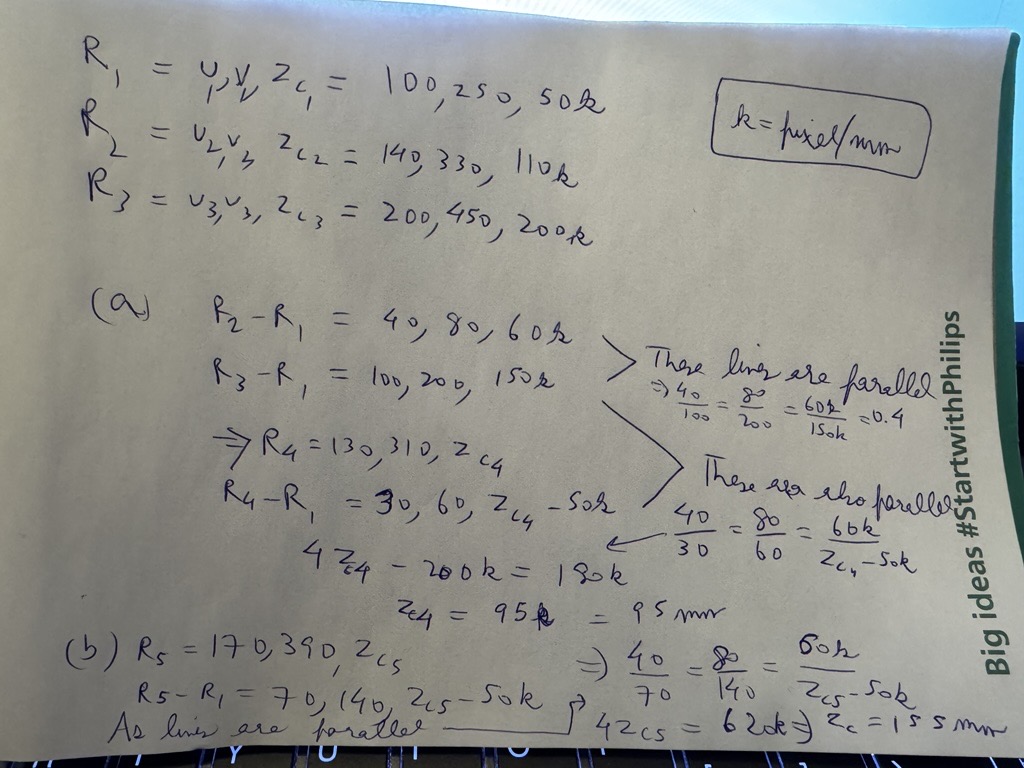 R1 = υ1,v1, Zc1 = 100, 250, 50k
k = pixel/mm
R2 = υ2,v3, Zc2 = 140, 330, 110k
R3 = υ3,υ3, Zc3 = 200, 450, 200k
(a) R2 - R1 = 40, 80, 60k
R3 - R1 = 100, 200, 150k
These lines are parallel
⇒ 40/100 = 80/200 = 60k/150k = 0.4
⇒ R4 = 130, 310, Zc4
R4 - R1 = 30, 60, Zc4 - 50k
These are also parallel
40/30 = 80/60 = 60k/Zc4 - 50k
4Zc4 - 200k = 180k
Zc4 = 95k = 95 mm
(b) R5 = 170, 390, Zc5
R5 - R1 = 70, 140, Zc5 - 50k
As lines are parallel
⇒ 40/70 = 80/140 = 60k/Zc5 - 50k
4Zc5 = 620k ⇒ Zc = 155 mm
Big ideas #StartwithPhilips